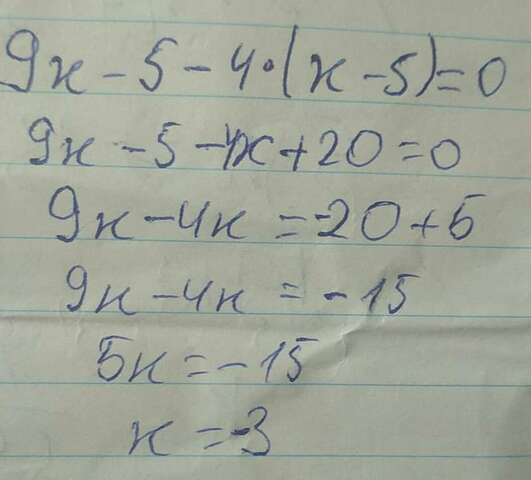 9x - 5 - 4·(x - 5) = 0
9x - 5 - 4x + 20 = 0
9x - 4x = -20 + 5
9x - 4x = -15
5x = -15
x = -3